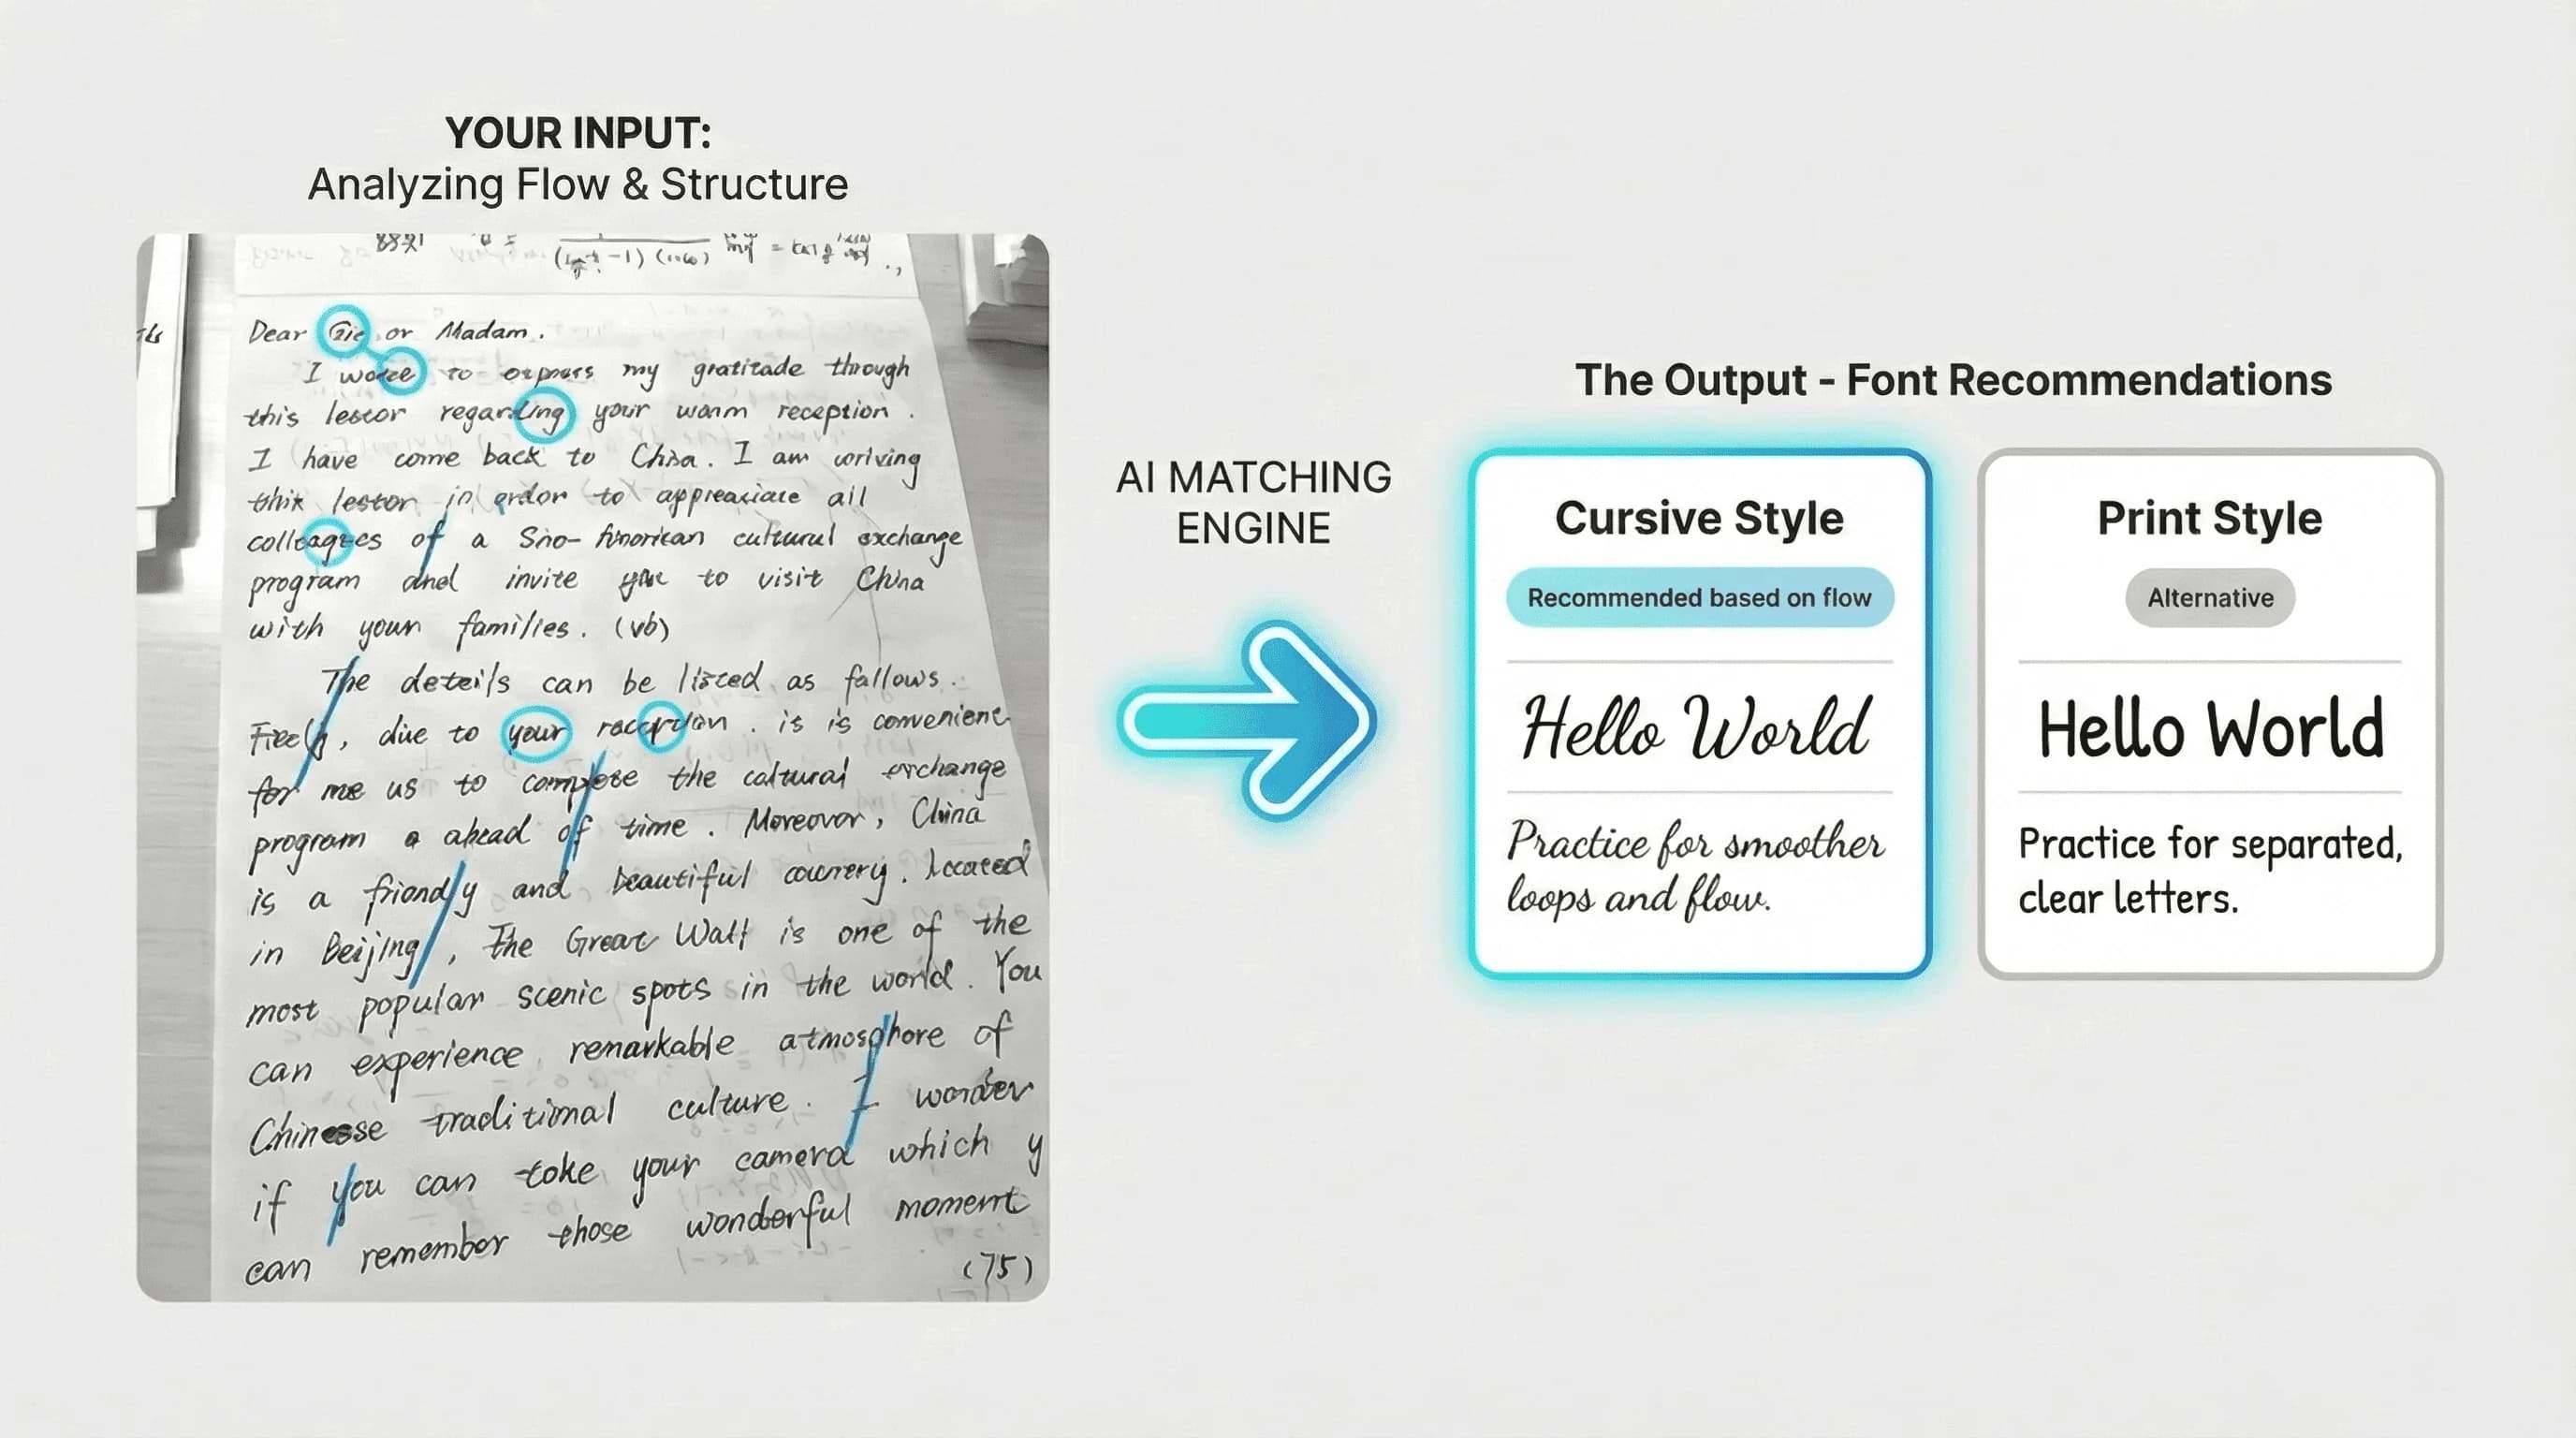 YOUR INPUT:
Analyzing Flow & Structure
Dear or Madam.
I to my gratitude through
this lestor regarding your warm reception.
I have come back to China. I am
this lestor in order to all
of a cultural exchange
program and invite you to visit China
with your families. (vb)
The details can be listed as fallows.
due to your . is is convenient
for me us to the cultural exchange
program a ahead of time. Moreover, China
is a friendly and beautiful . located
in Beijing, The Great Wall is one of the
most popular scenic spots in the world. You
can experience remarkable atmosphore of
Chinesse traditional culture. I wonder
if you can toke your camera which y
can remember those wonderful moment
(75)
AI MATCHING
ENGINE
The Output - Font Recommendations
Cursive Style
Recommended based on flow
Hello World
Practice for smoother
loops and flow.
Print Style
Alternative
Hello World
Practice for separated,
clear letters.